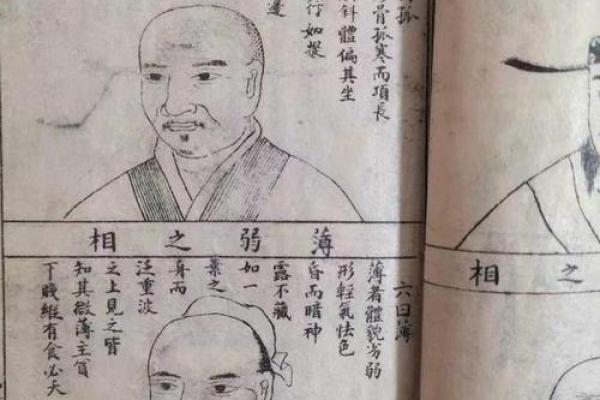 孤
骨孤寒而項長
斜體偏其坐
行如
邊
薄弱之相
六曰薄
薄者體貌劣弱
形輕氣怯色
昏而暗神
露不藏
如一
葉之
舟而
泛重波
之上見之皆
知其微薄主貧
下賤維有食必夭
之相